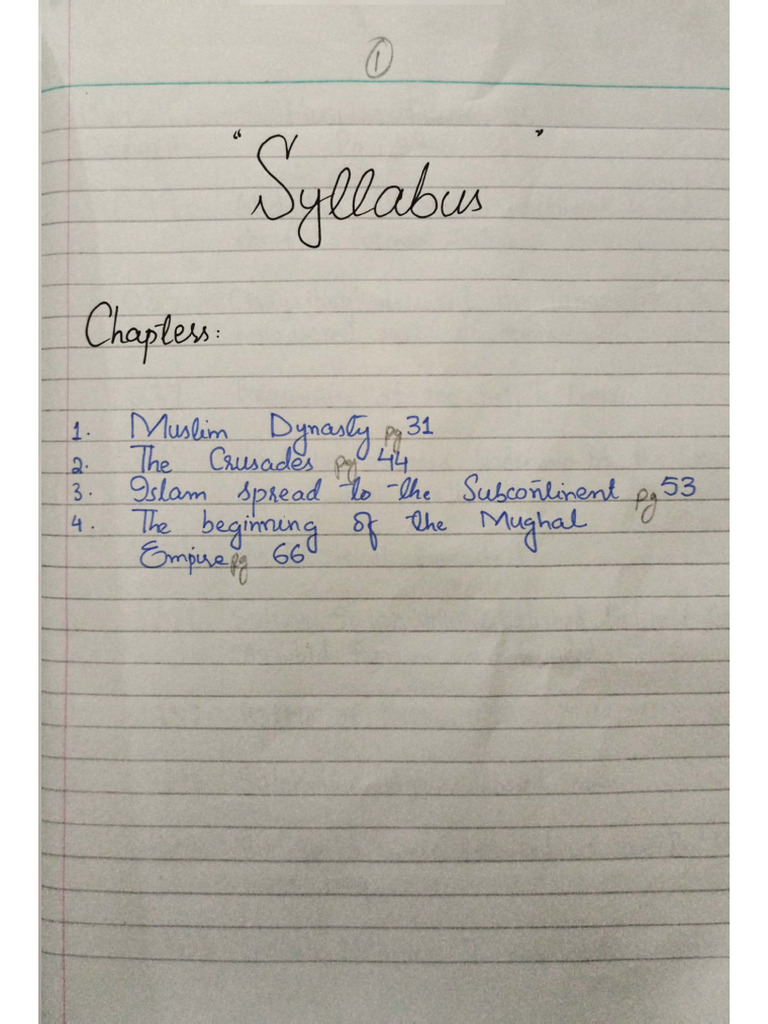 1
"Syllabus"
Chapters:
1. Muslim Dynasty pg 31
2. The Crusades pg 44
3. Islam spread to the Subcontinent pg 53
4. The beginning of the Mughal
Empire pg 66